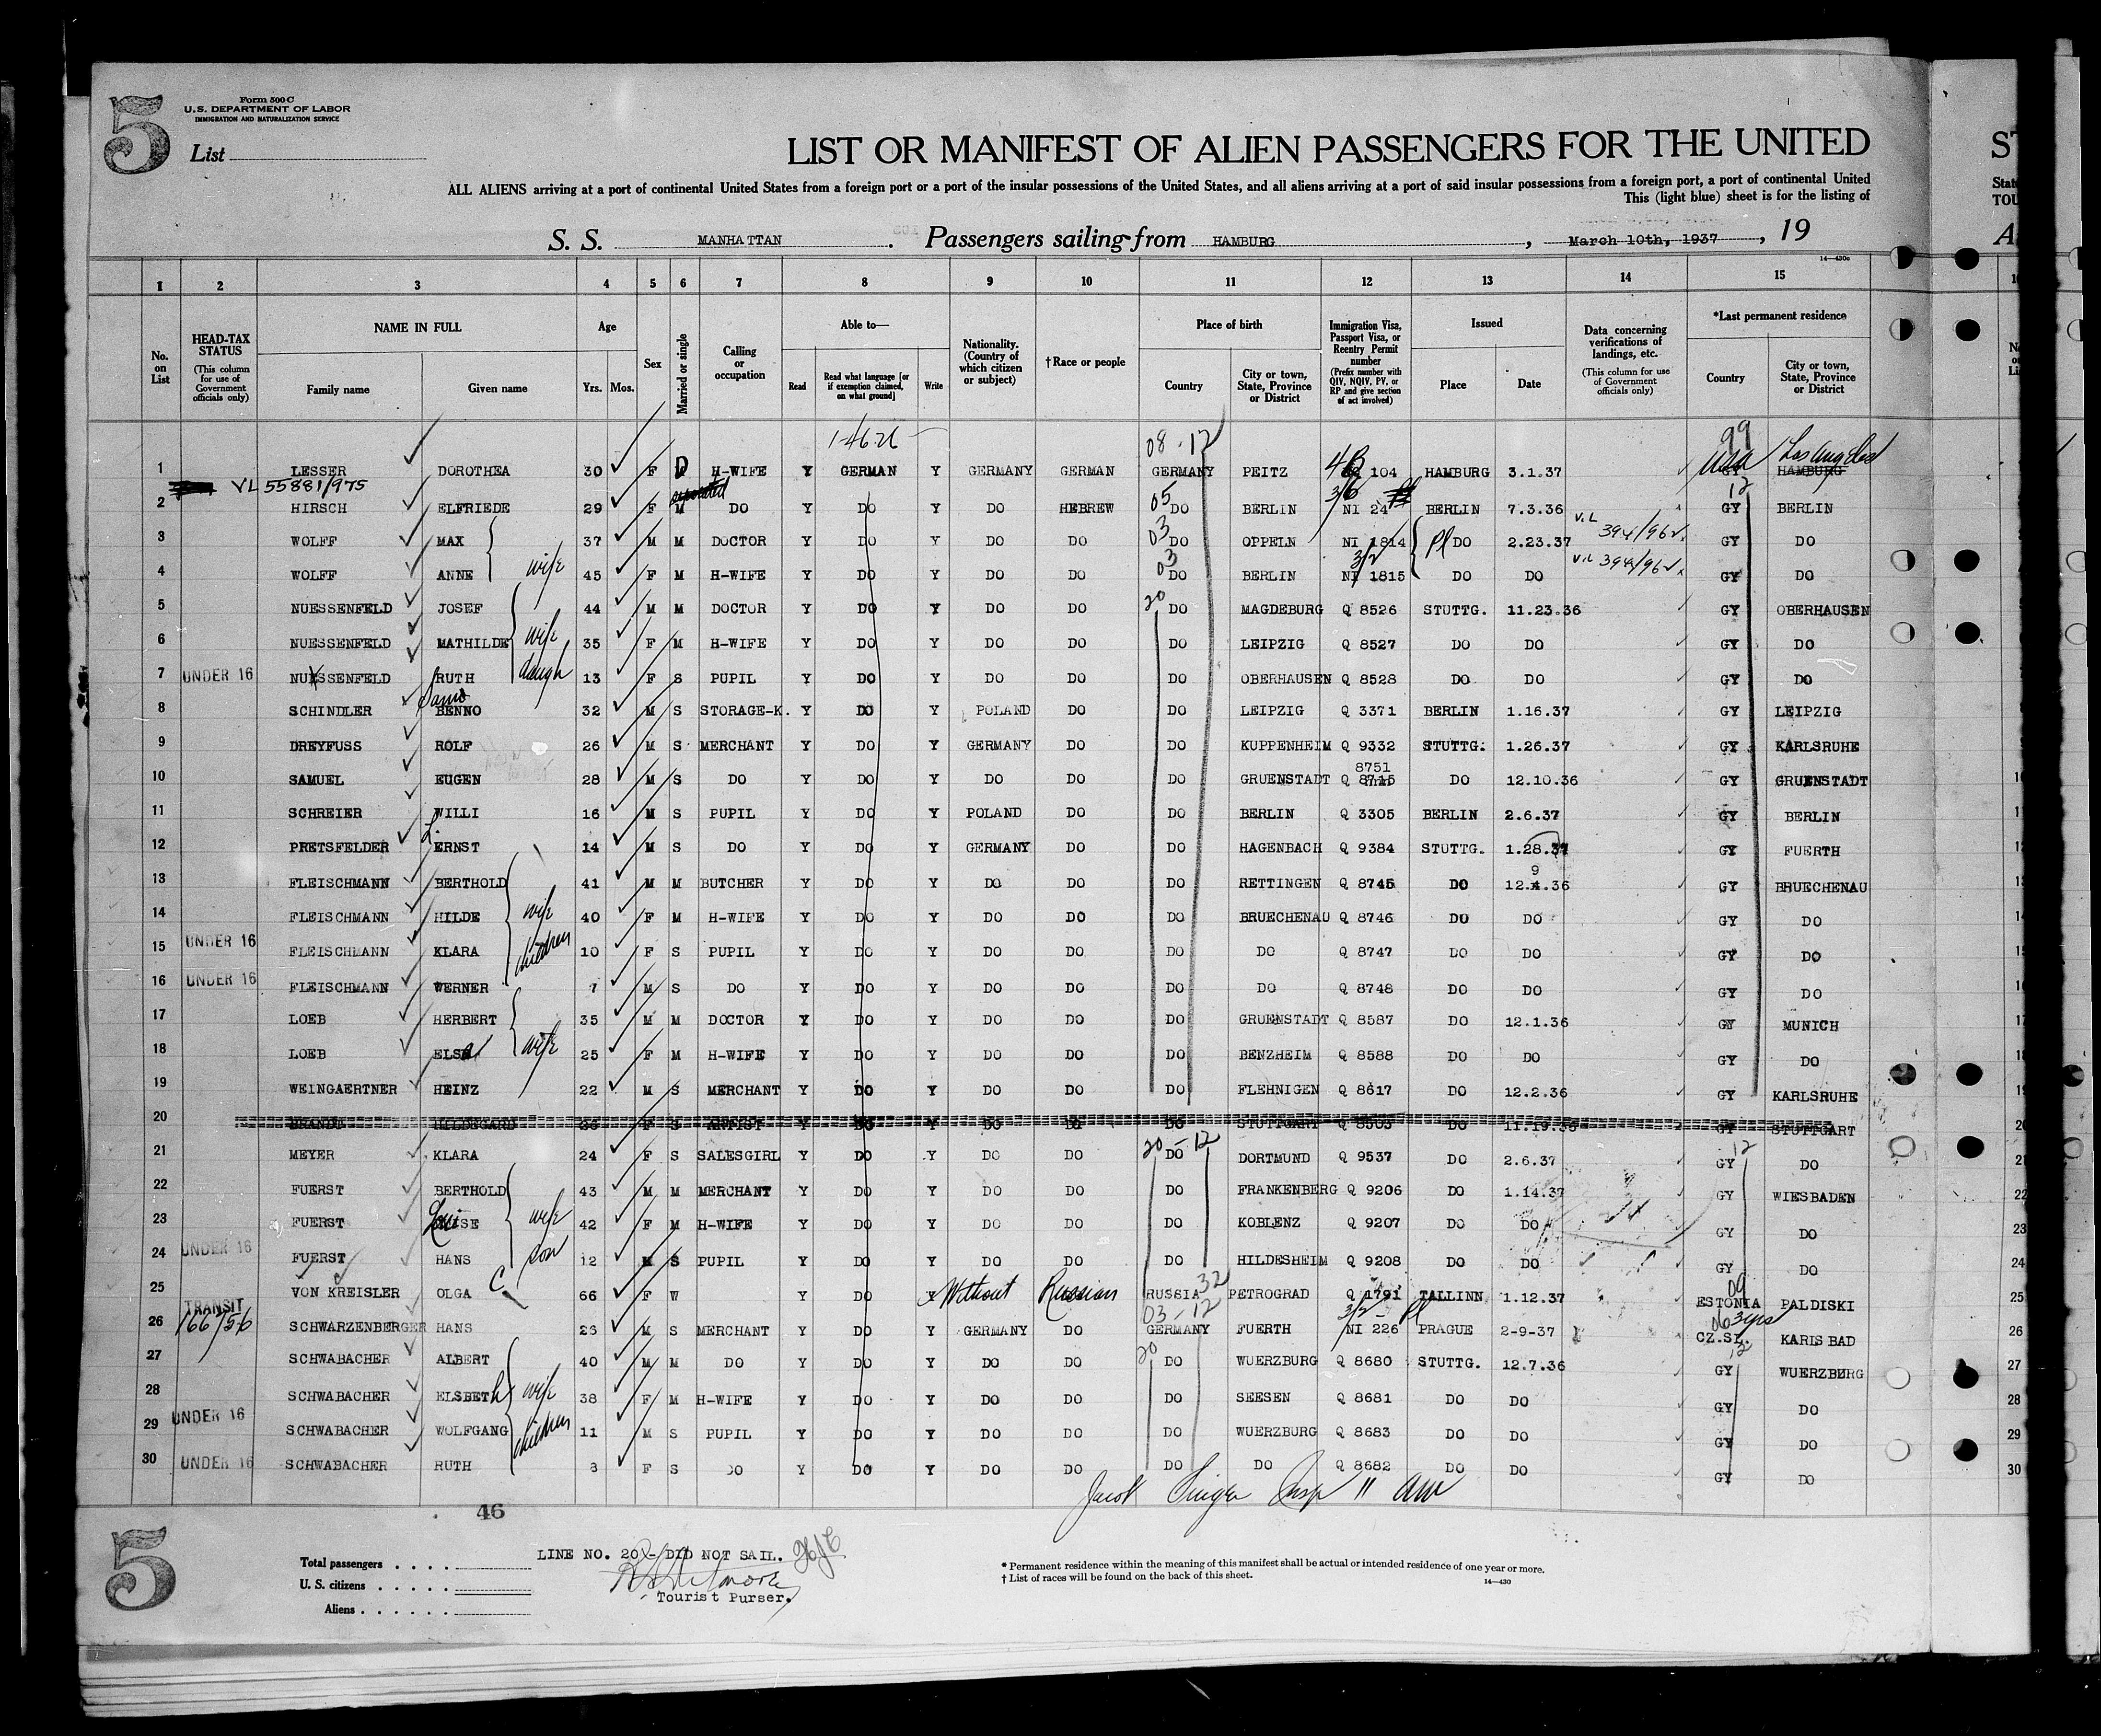 5
Form 500 C
U.S. DEPARTMENT OF LABOR
IMMIGRATION AND NATURALIZATION SERVICE
List
LIST OR MANIFEST OF ALIEN PASSENGERS FOR THE UNITED
ALL ALIENS arriving at a port of continental United States from a foreign port or a port of the insular possessions of the United States, and all aliens arriving at a port of said insular possessions from a foreign port, a port of continental United
This (light blue) sheet is for the listing of
S. S. MANHATTAN. Passengers sailing from HAMBURG, March 10th, 1937, 19
14—430c
1 2 3 4 5 6 7 8 9 10 11 12 13 14 15
No. on List
HEAD-TAX STATUS (This column for use of Government officials only)
NAME IN FULL Family name Given name
Age Yrs. Mos.
Sex
Married or single
Calling or occupation
Able to— Read Read what language [or if exemption claimed, on what ground] Write
Nationality. (Country of which citizen or subject)
†Race or people
Place of birth Country City or town, State, Province or District
Immigration Visa, Passport Visa, or Reentry Permit number (Prefix number with QIV, NQIV, PV, or RP and give section of act involved)
Issued Place Date
Data concerning verifications of landings, etc. (This column for use of Government officials only)
*Last permanent residence Country City or town, State, Province or District
1-4626 08-12 99
1 LESSER DOROTHEA 30 F D H-WIFE Y GERMAN Y GERMANY GERMAN GERMANY PEITZ 4B 104 HAMBURG 3.1.37 USA Los Angeles HAMBURG
VL 55881/975 separated 3/6 12
2 HIRSCH ELFRIEDE 29 F M DO Y DO Y DO HEBREW 05 DO BERLIN NI 24 BERLIN 7.3.36 GY BERLIN
3 WOLFF MAX 37 M M DOCTOR Y DO Y DO DO 03 DO OPPELN NI 1814 Pl DO 2.23.37 V.L 394/96 GY DO
4 WOLFF ANNE wife 45 F M H-WIFE Y DO Y DO DO 03 DO BERLIN 3/2 NI 1815 DO DO V.L 394/96 GY DO
5 NUESSENFELD JOSEF 44 M M DOCTOR Y DO Y DO DO 20 DO MAGDEBURG Q 8526 STUTTG. 11.23.36 GY OBERHAUSEN
6 NUESSENFELD MATHILDE wife 35 F M H-WIFE Y DO Y DO DO DO LEIPZIG Q 8527 DO DO GY DO
7 UNDER 16 NUESSENFELD RUTH daugh 13 F S PUPIL Y DO Y DO DO DO OBERHAUSEN Q 8528 DO DO GY DO
8 SCHINDLER BENNO 32 M S STORAGE-K. Y DO Y POLAND DO DO LEIPZIG Q 3371 BERLIN 1.16.37 GY LEIPZIG
9 DREYFUSS ROLF 26 M S MERCHANT Y DO Y GERMANY DO DO KUPPENHEIM Q 9332 STUTTG. 1.26.37 GY KARLSRUHE
10 SAMUEL EUGEN 28 M S DO Y DO Y DO DO DO GRUENSTADT Q 8751 DO 12.10.36 GY GRUENSTADT
11 SCHREIER WILLI 16 M S PUPIL Y DO Y POLAND DO DO BERLIN Q 3305 BERLIN 2.6.37 GY BERLIN
12 PRETSFELDER L. ERNST 14 M S DO Y DO Y GERMANY DO DO HAGENBACH Q 9384 STUTTG. 1.28.37 GY FUERTH
13 FLEISCHMANN BERTHOLD 41 M M BUTCHER Y DO Y DO DO DO RETTINGEN Q 8745 DO 12.9.36 GY BRUECHENAU
14 FLEISCHMANN HILDE wife 40 F M H-WIFE Y DO Y DO DO DO BRUECHENAU Q 8746 DO DO GY DO
15 UNDER 16 FLEISCHMANN KLARA children 10 F S PUPIL Y DO Y DO DO DO DO Q 8747 DO DO GY DO
16 UNDER 16 FLEISCHMANN WERNER 7 M S DO Y DO Y DO DO DO DO Q 8748 DO DO GY DO
17 LOEB HERBERT 35 M M DOCTOR Y DO Y DO DO DO GRUENSTADT Q 8587 DO 12.1.36 GY MUNICH
18 LOEB ELSA wife 25 F M H-WIFE Y DO Y DO DO DO BENZHEIM Q 8588 DO DO GY DO
19 WEINGAERTNER HEINZ 22 M S MERCHANT Y DO Y DO DO DO FLEHNIGEN Q 8617 DO 12.2.36 GY KARLSRUHE
20 BRANDT HILDEGARD 26 F S ARTIST Y DO Y DO DO DO STUTTGART Q 8503 DO 11.19.36 GY STUTTGART
21 MEYER KLARA 24 F S SALESGIRL Y DO Y DO DO 20-12 DO DORTMUND Q 9537 DO 2.6.37 12 GY DO
22 FUERST BERTHOLD 43 M M MERCHANT Y DO Y DO DO DO FRANKENBERG Q 9206 DO 1.14.37 GY WIESBADEN
23 FUERST LouiSE wife 42 F M H-WIFE Y DO Y DO DO DO KOBLENZ Q 9207 DO DO GY DO
24 UNDER 16 FUERST HANS son 12 M S PUPIL Y DO Y DO DO DO HILDESHEIM Q 9208 DO DO GY DO
25 VON KREISLER OLGA C 66 F W Y DO Y Without Russian RUSSIA 32 PETROGRAD Q 1791 TALLINN 1.12.37 09 ESTONIA PALDISKI
26 TRANSIT 166/56 SCHWARZENBERGER HANS 26 M S MERCHANT Y DO Y GERMANY DO 03-12 GERMANY FUERTH 3/2 NI 226 Pl PRAGUE 2-9-37 06 3yrs CZ.SL. KARLSBAD
27 SCHWABACHER ALBERT 40 M M DO Y DO Y DO DO 20 DO WUERZBURG Q 8680 STUTTG. 12.7.36 12 GY WUERZBURG
28 SCHWABACHER ELSBETh wife 38 F M H-WIFE Y DO Y DO DO DO SEESEN Q 8681 DO DO GY DO
29 UNDER 16 SCHWABACHER WOLFGANG children 11 M S PUPIL Y DO Y DO DO DO WUERZBURG Q 8683 DO DO GY DO
30 UNDER 16 SCHWABACHER RUTH 8 F S DO Y DO Y DO DO DO DO Q 8682 DO DO GY DO
Jacob Singer Insp
46
5
Total passengers . . . .
U. S. citizens . . . . .
Aliens . . . . . .
LINE NO. 20 - DID NOT SAIL.
Tourist Purser.
* Permanent residence within the meaning of this manifest shall be actual or intended residence of one year or more.
† List of races will be found on the back of this sheet.
14—430